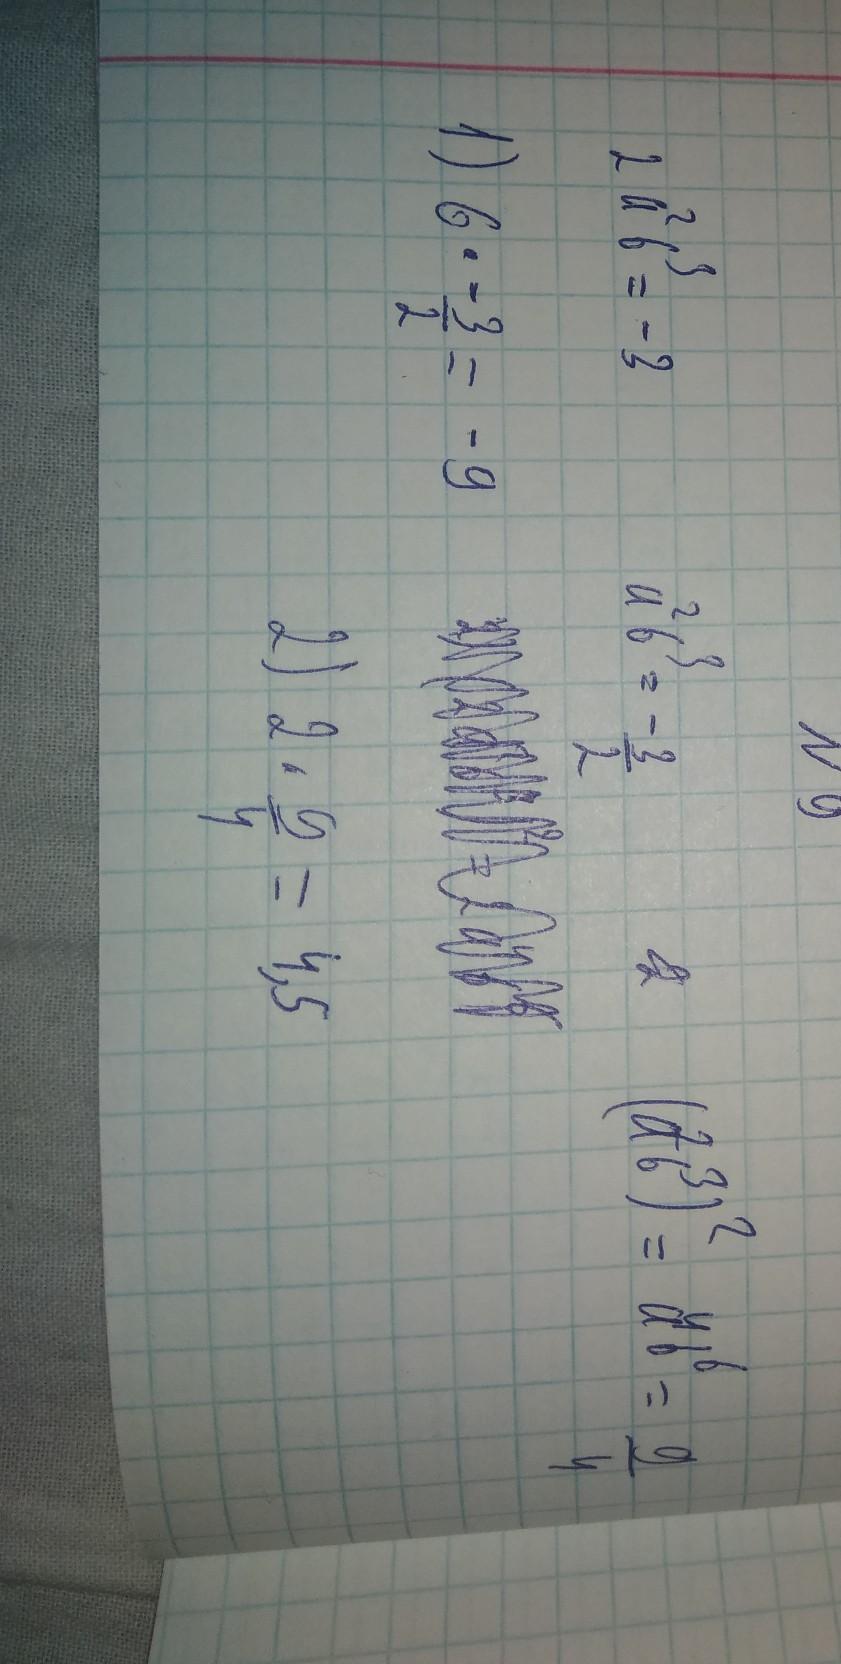 N 9
2a²b³ = -3 a²b³ = -3/2 2 (a²b³)² = a⁴b⁶ = 9/4
1) 6 · -3/2 = -9
2) 2 · 9/4 = 4,5